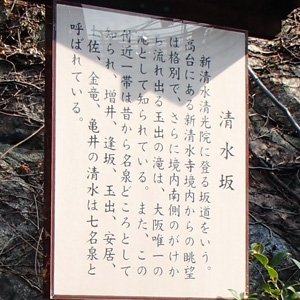 清水坂
新清水清光院に登る坂道をいう。
高台にある新清水寺境内からの眺望
は格別で、さらに境内南側のがけか
ら流れ出る玉出の滝は、大阪唯一の
滝として知られている。また、この
付近一帯は昔から名泉どころとして
知られ、増井、逢坂、玉出、安居、
土佐、金竜、亀井の清水は七名泉と
呼ばれている。